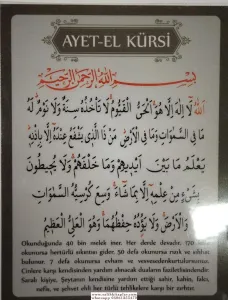 AYET-EL KÜRSİ
بِسْمِ اللهِ الرَّحْمٰنِ الرَّحِيمِ
اَللهُ لَا اِلٰهَ اِلَّا هُوَ الْحَىُّ الْقَيُّومُ لَا تَأْخُذُهُ سِنَةٌ وَلَا نَوْمٌ لَهُ
مَا فِى السَّمٰوَاتِ وَمَا فِى الْاَرْضِ مَنْ ذَا الَّذِى يَشْفَعُ عِنْدَهُ اِلَّا بِاِذْنِهِ
يَعْلَمُ مَا بَيْنَ اَيْدِيهِمْ وَمَا خَلْفَهُمْ وَلَا يُحِيطُونَ
بِشَىْءٍ مِنْ عِلْمِهِ اِلَّا بِمَا شَاءَ وَسِعَ كُرْسِيُّهُ السَّمٰوَاتِ
وَالْاَرْضَ وَلَا يَؤُدُهُ حِفْظُهُمَا وَهُوَ الْعَلِىُّ الْعَظِيمُ
Okunduğunda 40 bin melek iner. Her derde devadır. 170
okunursa hertürlü sıkıntısı gider. 50 defa okunursa rızık ve
bulunur. 7 defa okunursa evham ve
Cinlere karşı kendisinden yardım alınacak duaların faziletlisindendir.
Saralı kişiye, Şeytanın kendisine yardım ettiği sahir, kahin, falcı,
nefis, ve şehvet ehli her türlü tehlikelere karşı bir zırhtır.